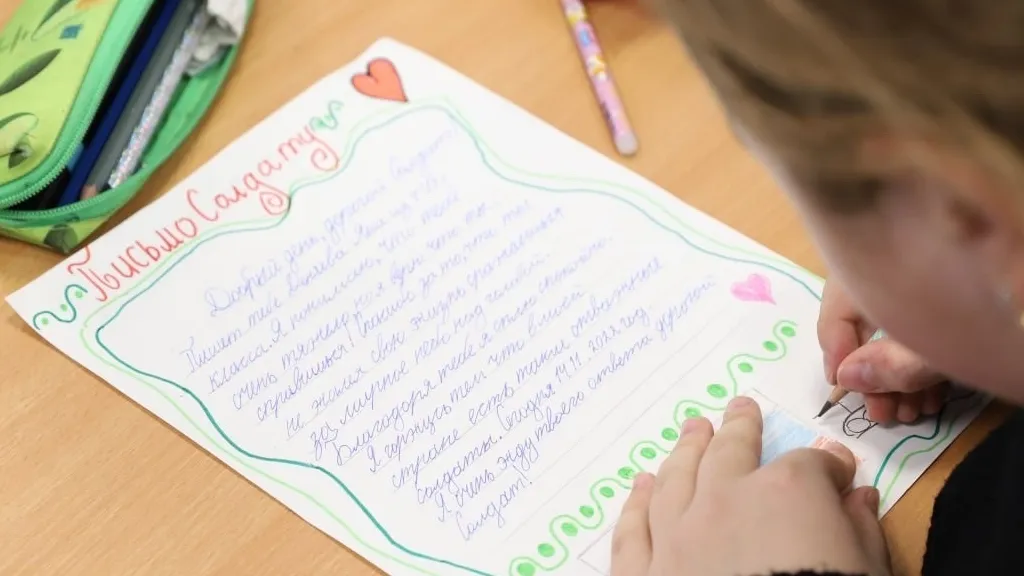 Письмо Солдату
Добрый день, дорогой Солдат
Пишет тебе Валиева Яна из 4"б"
класса. Я понимаю, что тебе
очень тяжело, но я верю что ты
справишься! Спасибо за то, что ты
не жалея свою жизнь сражаешься
за мирное небо над головой.
Благодоря тебе я сплю спокойно.
Я горжусь тем что в моей
стране есть такие отважные
солдаты. Сегодня 14.11.2022 год
Я очень жду твоего ответа дорогой
Солдат!